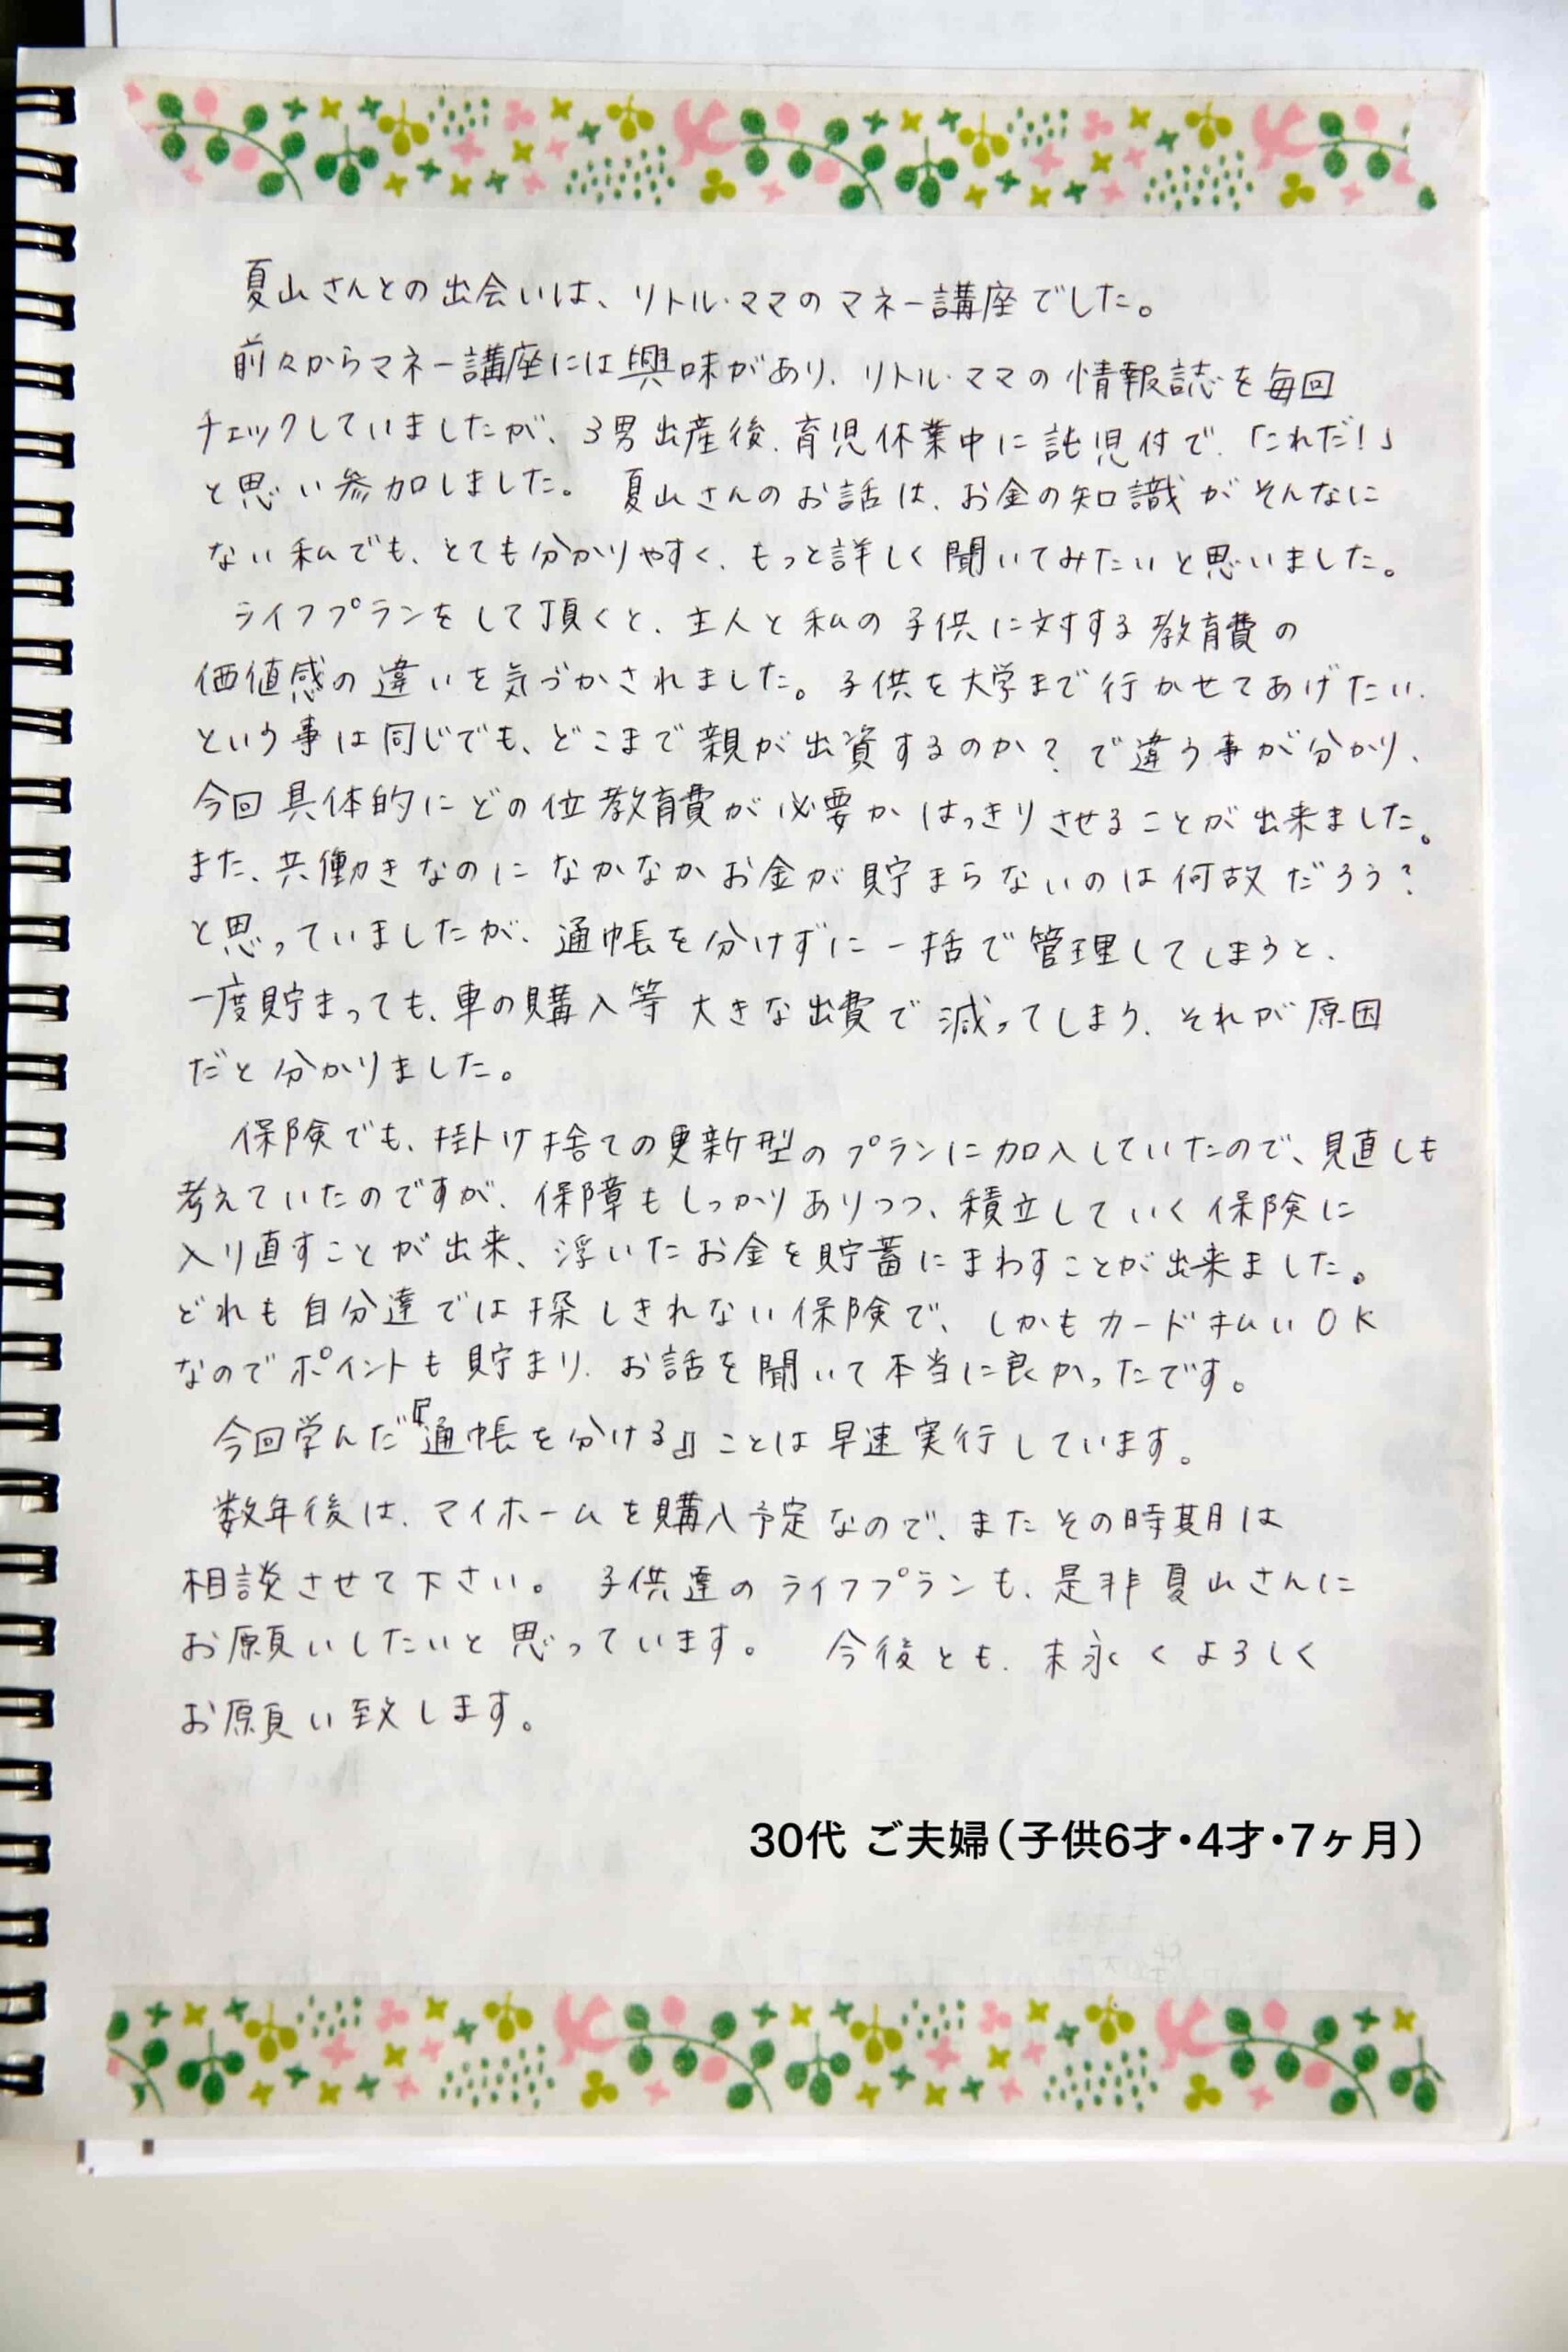 夏山さんとの出会いは、リトル・ママのマネー講座でした。
前々からマネー講座には興味があり、リトル・ママの情報誌を毎回
チェックしていましたが、3男出産後、育児休業中に託児付で、「これだ!」
と思い参加しました。 夏山さんのお話は、お金の知識がそんなに
ない私でも、とても分かりやすく、もっと詳しく聞いてみたいと思いました。
ライフプランをして頂くと、主人と私の子供に対する教育費の
価値感の違いを気づかされました。子供を大学まで行かせてあげたい、
という事は同じでも、どこまで親が出資するのか?で違う事が分かり、
今回具体的にどの位教育費が必要かはっきりさせることが出来ました。
また、共働きなのになかなかお金が貯まらないのは何故だろう?
と思っていましたが、通帳を分けずに一括で管理してしまうと、
一度貯まっても、車の購入等大きな出費で減ってしまう、それが原因
だと分かりました。
保険でも、掛け捨ての更新型のプランに加入していたので、見直しも
考えていたのですが、保障もしっかりありつつ、積立していく保険に
入り直すことが出来、浮いたお金を貯蓄にまわすことが出来ました。
どれも自分達では探しきれない保険で、しかもカード払いOK
なのでポイントも貯まり、お話を聞いて本当に良かったです。
今回学んだ『通帳を分ける』ことは早速実行しています。
数年後は、マイホームを購入予定なので、またその時期は
相談させて下さい。 子供達のライフプランも、是非夏山さんに
お願いしたいと思っています。 今後とも、末永くよろしく
お願い致します。
30代 ご夫婦(子供6才・4才・7ヶ月)